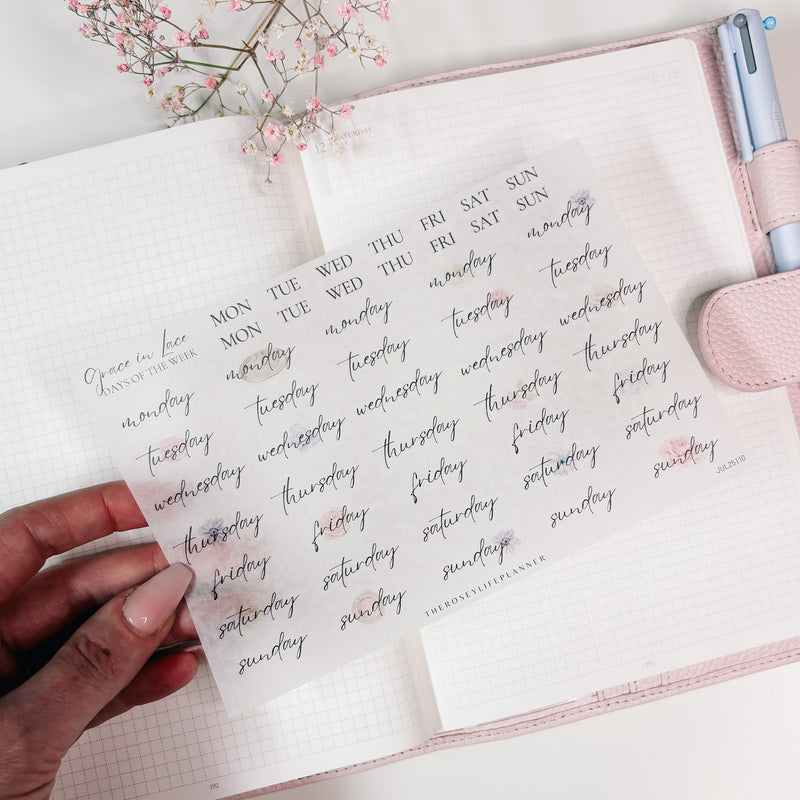 12 SATURDAY
Grace in Lace
DAYS OF THE WEEK
MON TUE WED THU FRI SAT SUN
MON TUE WED THU FRI SAT SUN
monday monday monday monday monday
tuesday tuesday tuesday tuesday tuesday
wednesday wednesday wednesday wednesday wednesday
thursday thursday thursday thursday thursday
friday friday friday friday friday
saturday saturday saturday saturday saturday
sunday sunday sunday sunday sunday
THEROSEYLIFEPLANNER
JUL25110
192
193